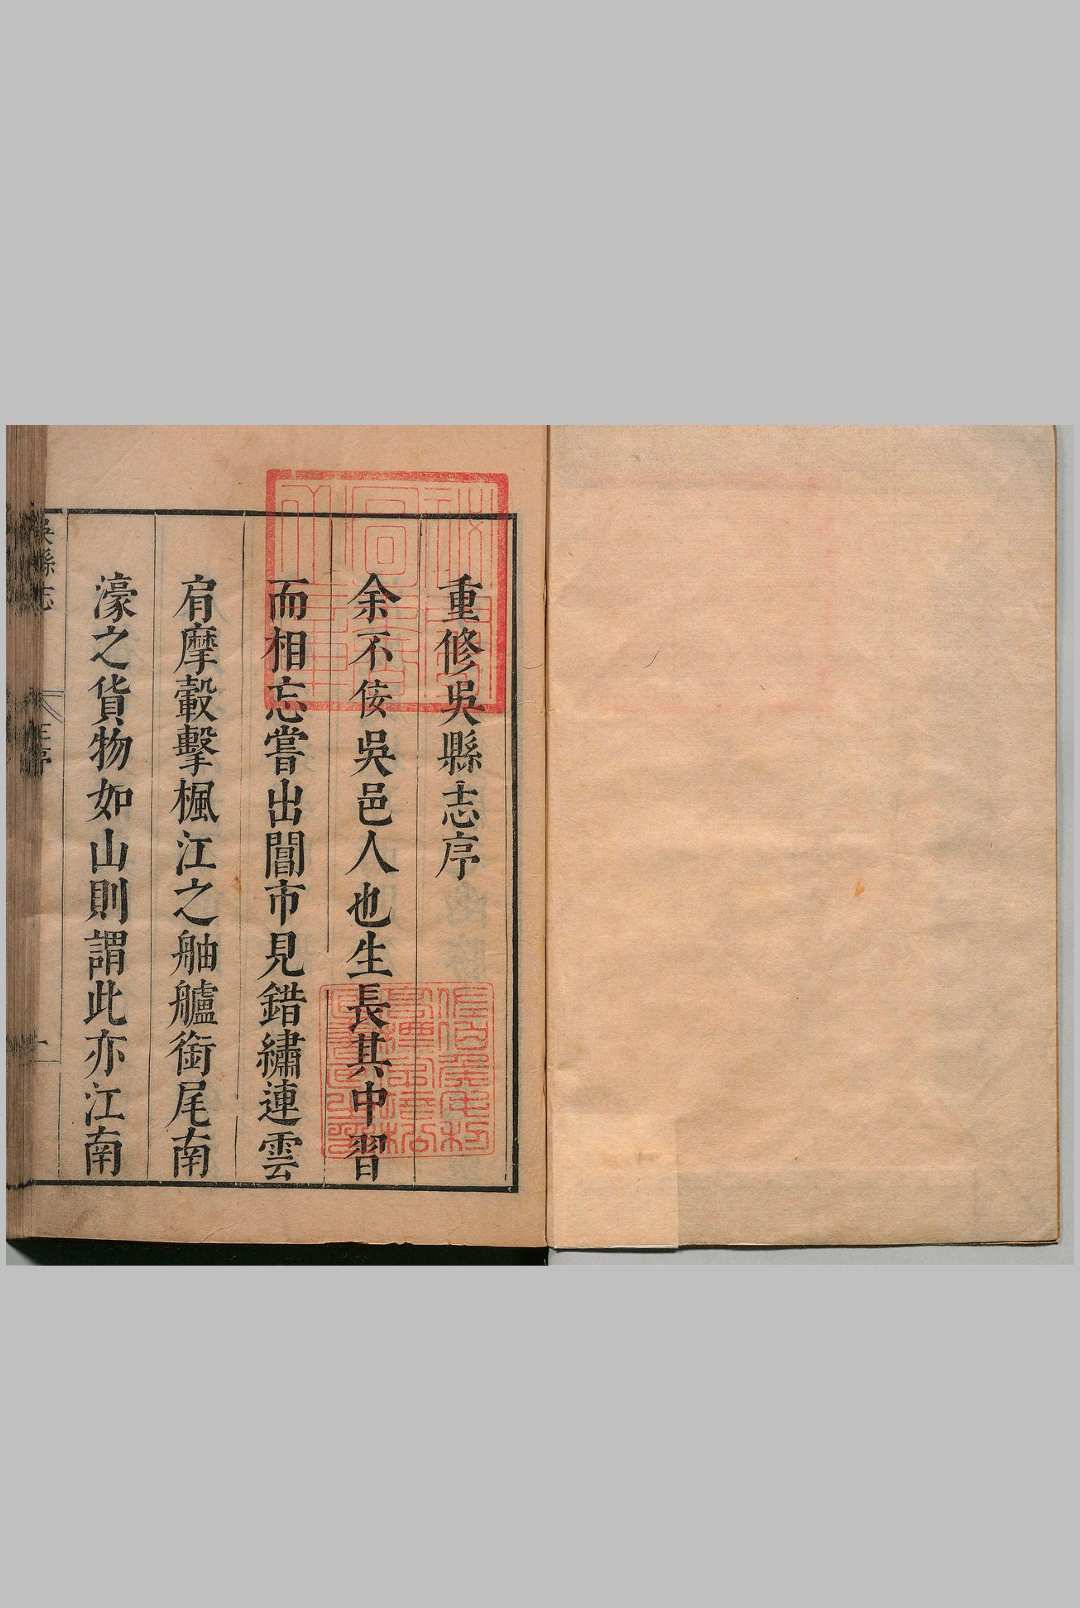 重修吳縣志序
余不佞吳邑人也生長其中習
而相忘嘗出閶市見錯繡連雲
肩摩轂擊楓江之舳艫銜尾南
濠之貨物如山則謂此亦江南
吳縣志
王序